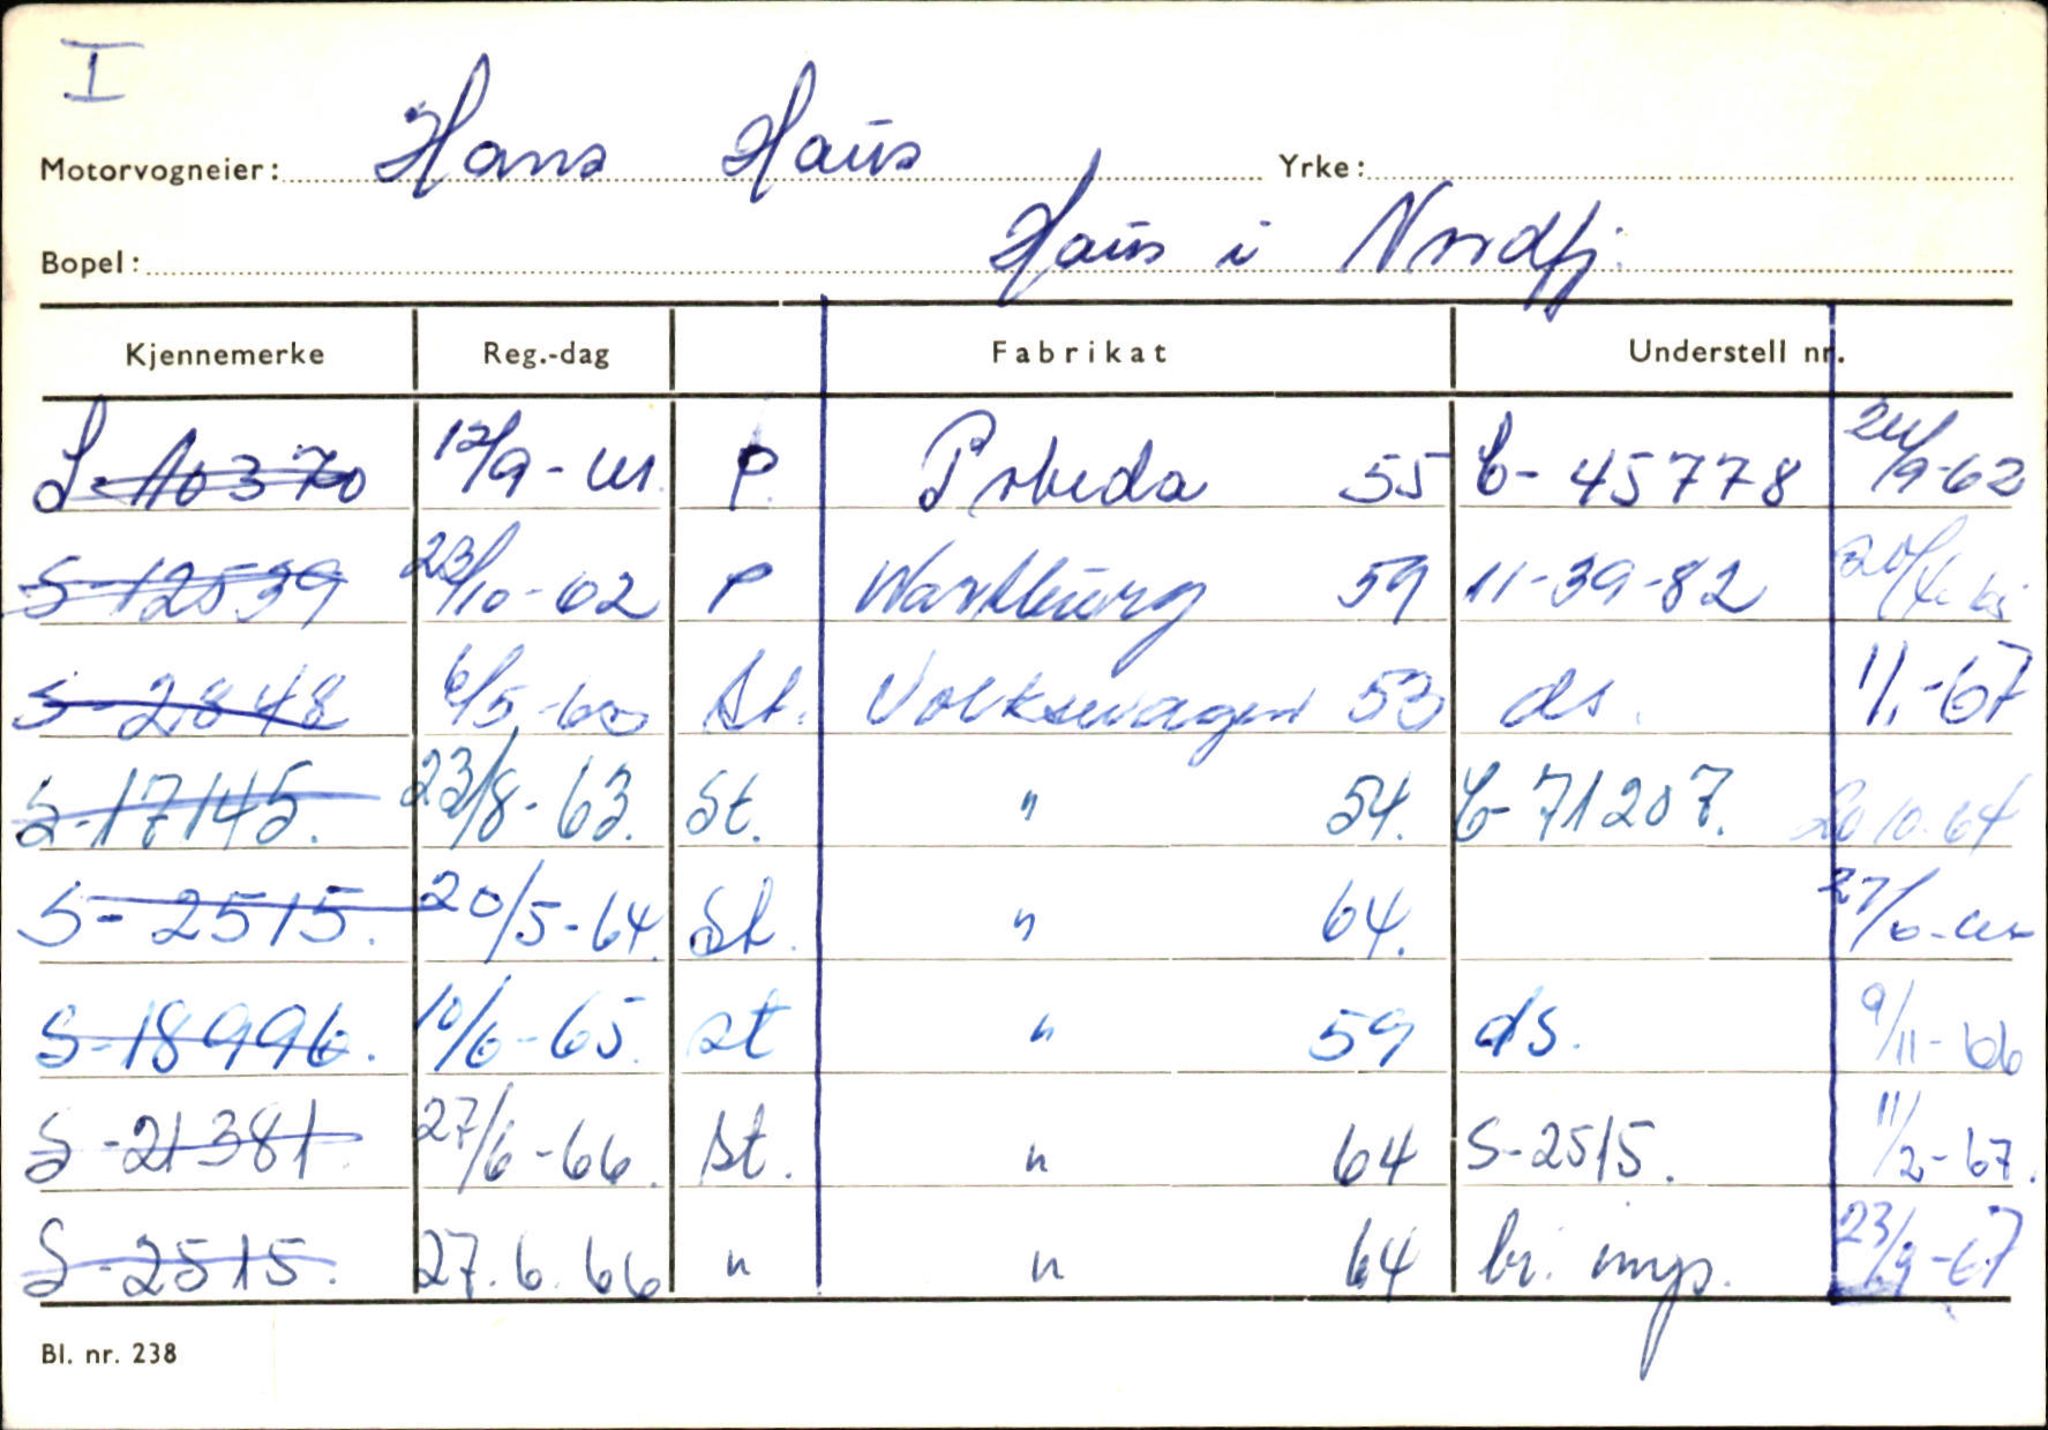 I
Motorvogneier: Hans Haus Yrke:
Bopel: Haus i Nordfj.
Kjennemerke Reg.-dag Fabrikat Understell nr.
S-10370 12/9-61 P. Pobeda 55 C-45778 24/9-62
S-12539 23/10-62 P Wartburg 59 11-39-82
S-2848 6/5-63 St. Volkswagen 53 ds. 11/1-67
S-17145. 23/8-63. St. " 54. C-71207. 20.10.64
S-2515. 20/5-64. St. " 64. 27/6-66
S-18996. 10/6-65. st " 59 ds. 9/11-66
S-21381. 27/6-66. St. " 64 S-2515. 11/2-67.
S-2515. 27.6.66 " " 64 br. imp. 23/9-67
Bl. nr. 238